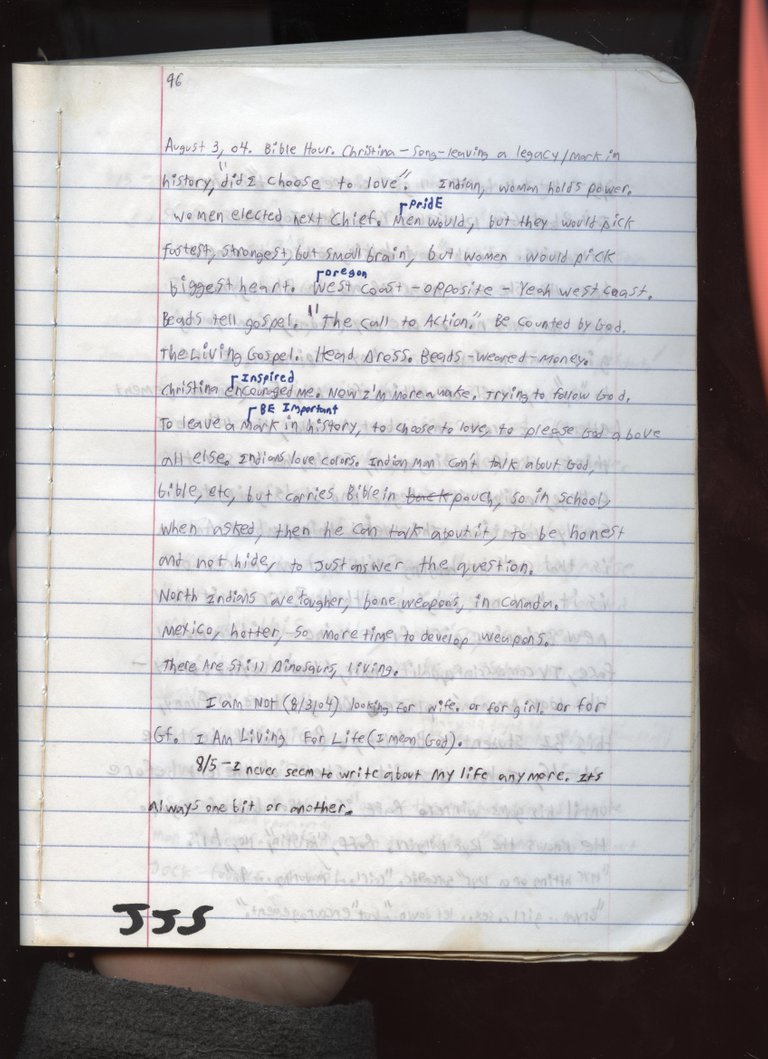 96
August 3, 04. Bible Hour. Christina - Song - leaving a legacy/mark in
history, "did I choose to love". Indian, woman holds power.
Pride
Women elected next Chief. Men would, but they would pick
fastest, strongest, but small brain, but women would pick
oregon
biggest heart. West coast - opposite - Yeah west coast.
Beads tell gospel. "The call to Action." Be counted by God.
The Living Gospel. Head Dress. Beads - weared - money.
Inspired
Christina encouraged me. Now I'm more awake. Trying to follow God.
BE Important
To leave a mark in history, to choose to love, to please God above
all else. Indians love colors. Indian Man can't talk about God,
bible, etc, but carries Bible in back pouch, so in school,
when asked, then he can talk about it, to be honest
and not hide, to Just answer the question.
North Indians are tougher, bone weapons, in Canada.
Mexico, hotter, so more time to develop weapons.
There Are Still Dinosaurs, Living.
I am Not (8/3,04) looking for wife. or for girl. or for
Gf. I Am Living For Life (I mean God).
8/5 - I never seem to write about my life anymore. Its
Always one bit or another.
JJS